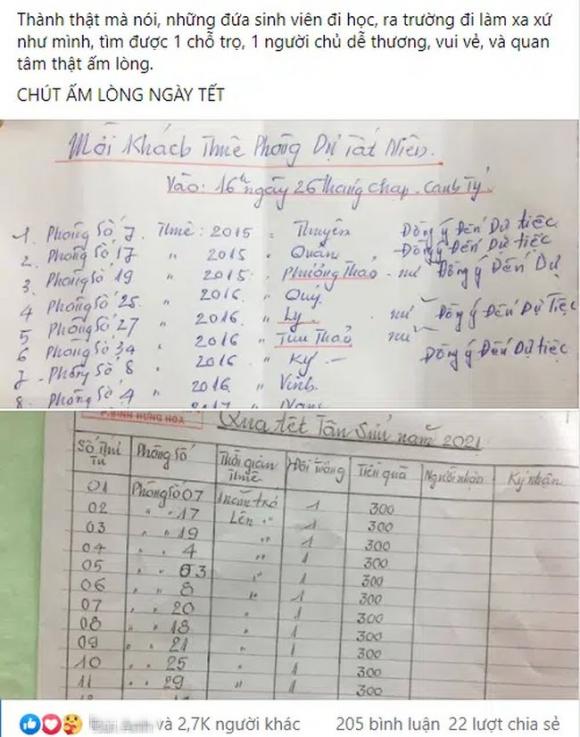 Thành thật mà nói, những đứa sinh viên đi học, ra trường đi làm xa xứ
như mình, tìm được 1 chỗ trọ, 1 người chủ dễ thương, vui vẻ, và quan
tâm thật ấm lòng.
CHÚT ẤM LÒNG NGÀY TẾT
Mời Khách Thuê Phòng Dự Tất Niên.
Vào: 16h ngày 26 Tháng Chạp. Canh Tý.
1. Phòng Số 7. Thuê: 2015 " Thuyên Đồng ý Đến Dự tiệc
2. Phòng Số 17 " 2015 " Quân Đồng ý Đến Dự tiệc
3. Phòng Số 19 " 2015 " Phương Thảo - nữ Đồng ý Đến Dự
4 Phòng Số 25 " 2016 " Quý
5 Phòng Số 27 " 2016 " Ly nữ Đồng ý Đến Dự Tiệc
6 Phòng Số 34 " 2016 " Thu Thảo nữ
7 - Phòng Số 8 " 2016 " Kỳ - Đồng ý Đến Dự tiệc
8. Phòng Số 4 " 2016 " Vinh
P. BÌNH HƯNG HÒA
Quà tết Tân Sửu năm 2021
Số Thứ Tự Phòng Số Thời gian Thuê Tiền quà Người nhận Ký nhận
01 Phòng Số 07 1 300
02 " " 17 Lên " 1 300
03 " " 19 " 1 300
04 " " 4 " 1 300
05 " " 03 " 1 300
06 " " 8 " 1 300
07 " " 20 " 1 300
08 " " 18 " 1 300
09 " " 21 " 1 300
10 " " 25 " 1 300
11 " " 29 " 1 300
và 2,7K người khác 205 bình luận 22 lượt chia sẻ